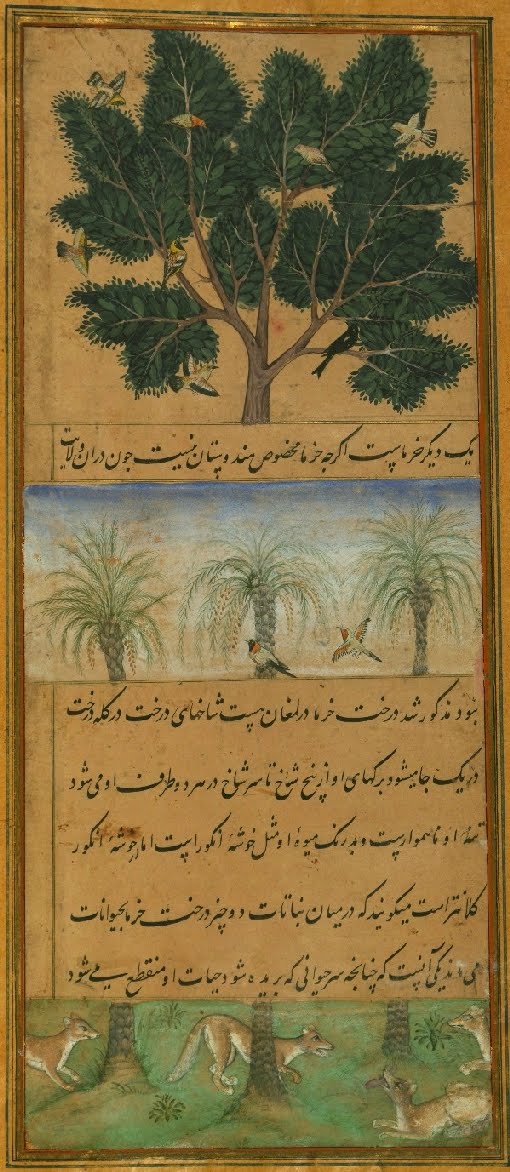 یک دیگر خرماست اگرچه خرما مخصوص هندوستان نیست چون دران ولایت
نبود مذکور شد درخت خرما در لمغان هست شاخهای درخت در کله درخت
در یک جا میشود برگهای او از بیخ شاخ تا سر شاخ در هر دو طرف او می شود
تنهٔ او ناهموارست و بد رنک میوهٔ او مثل خوشهٔ انکور است اما خوشهٔ انکور
کلانتر است میکویند که درمیان نباتات دو چیز درخت خرما بحیوانات
می ماند یکی آنست که چنانچه سر حیوانی که بریده شود حیات او منقطع می شود